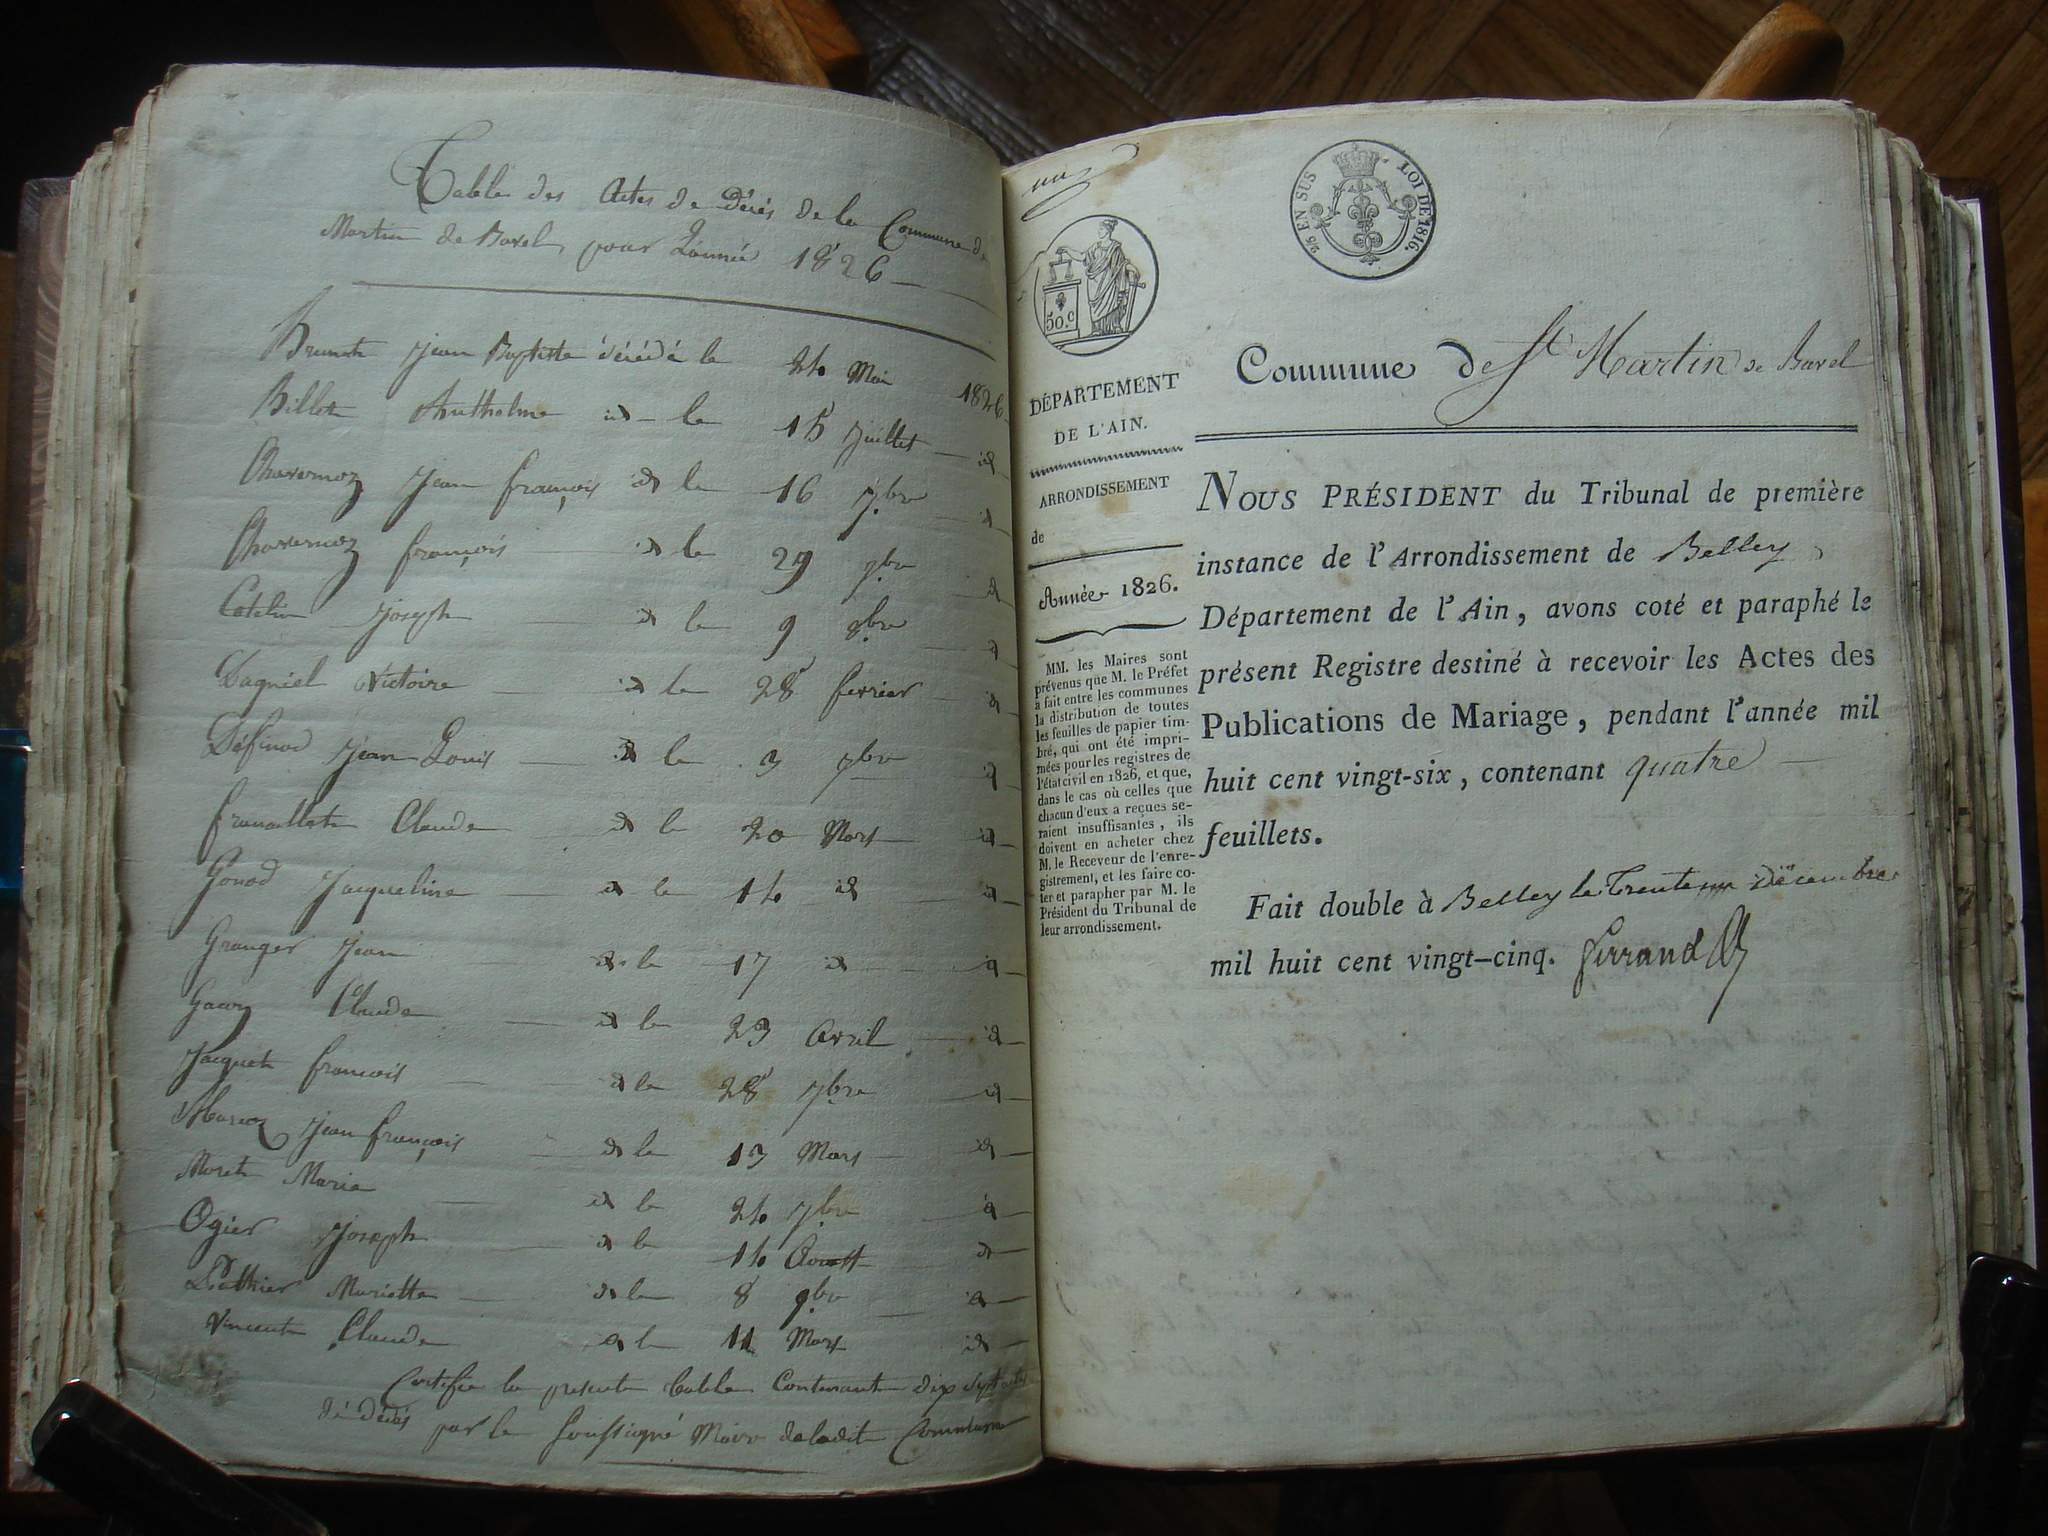 Table des Actes de Décés de la Commune de
Martin de Bavel, pour L'année 1826
Brunet Jean Baptiste décédé le 24 Mai 1826
Billet Anthelme id le 15 Juillet id
Chavornoz Jean françois id le 16 7bre id
Chavornoz françois id le 29 7bre id
Catelin Joseph id le 9 8bre id
Dagniel Victoire id le 28 fevrier id
Définod Jean Louis id le 3 7bre id
Claude id le 20 Mars id
Gonod Jacqueline id le 14 id id
Granger Jean id le 17 id id
Claude id le 23 avril id
Jacquet francois id le 28 7bre id
Jean françois id le 13 Mars id
Moret Marie id le 24 7bre id
Ogier Joseph id le 14 Aoust id
Mariette id le 8 9bre id
Vincent Claude id le 11 Mars id
Certifié la presente table Contenant dix Sept actes
de décés par le Soussigné Maire de ladite Commune
un
2/5 EN SUS LOI DE 1816.
50.c
DÉPARTEMENT
DE L'AIN.
ARRONDISSEMENT
de
Année 1826.
MM. les Maires sont
prévenus que M. le Préfet
a fait entre les communes
la distribution de toutes
les feuilles de papier tim-
bré, qui ont été impri-
mées pour les registres de
l'état civil en 1826, et que,
dans le cas où celles que
chacun d'eux a reçues se-
raient insuffisantes, ils
doivent en acheter chez
M. le Receveur de l'enre-
gistrement, et les faire co-
ter et parapher par M. le
Président du Tribunal de
leur arrondissement.
Commune de St Martin de Bavel
NOUS PRÉSIDENT du Tribunal de première
instance de l'Arrondissement de Belley,
Département de l'Ain, avons coté et paraphé le
présent Registre destiné à recevoir les Actes des
Publications de Mariage, pendant l'année mil
huit cent vingt-six, contenant quatre
feuillets.
Fait double à Belley le Trente un Décembre
mil huit cent vingt-cinq. Ferrand